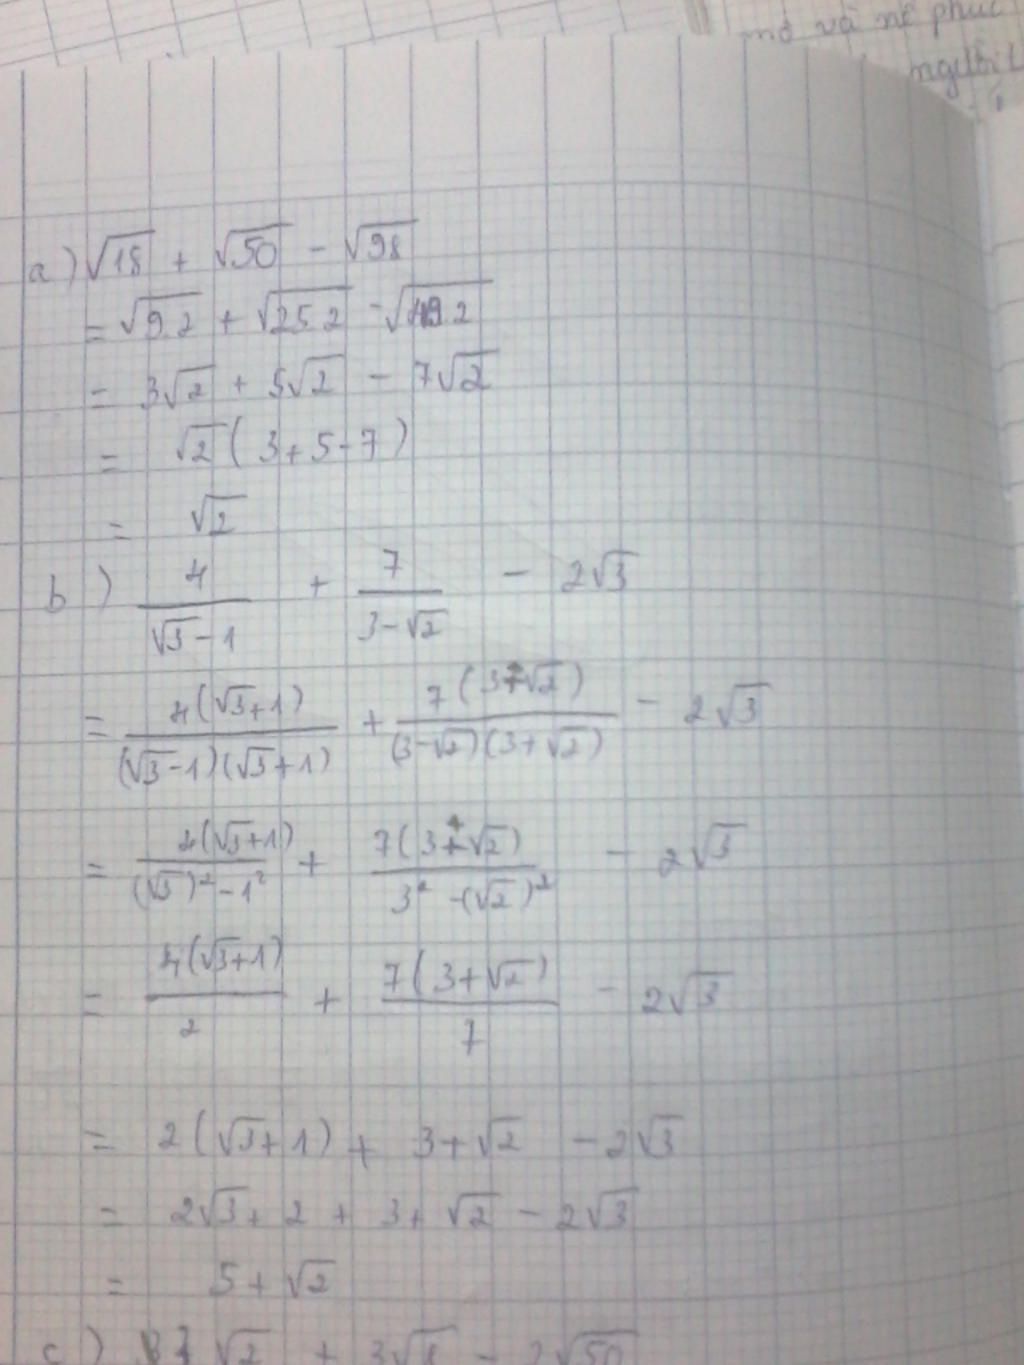 mở và nề phục
người
a) √18 + √50 - √98
= √9.2 + √25.2 - √49.2
= 3√2 + 5√2 - 7√2
= √2 ( 3+5-7 )
= √2
b) 4/(√3-1) + 7/(3-√2) - 2√3
= 4(√3+1)/((√3-1)(√3+1)) + 7(3+√2)/((3-√2)(3+√2)) - 2√3
= 4(√3+1)/((√3)²-1²) + 7(3+√2)/(3²-(√2)²) - 2√3
= 4(√3+1)/2 + 7(3+√2)/7 - 2√3
= 2(√3+1) + 3+√2 - 2√3
= 2√3 + 2 + 3 + √2 - 2√3
= 5 + √2
c) √2 + 3√8 - 2√50